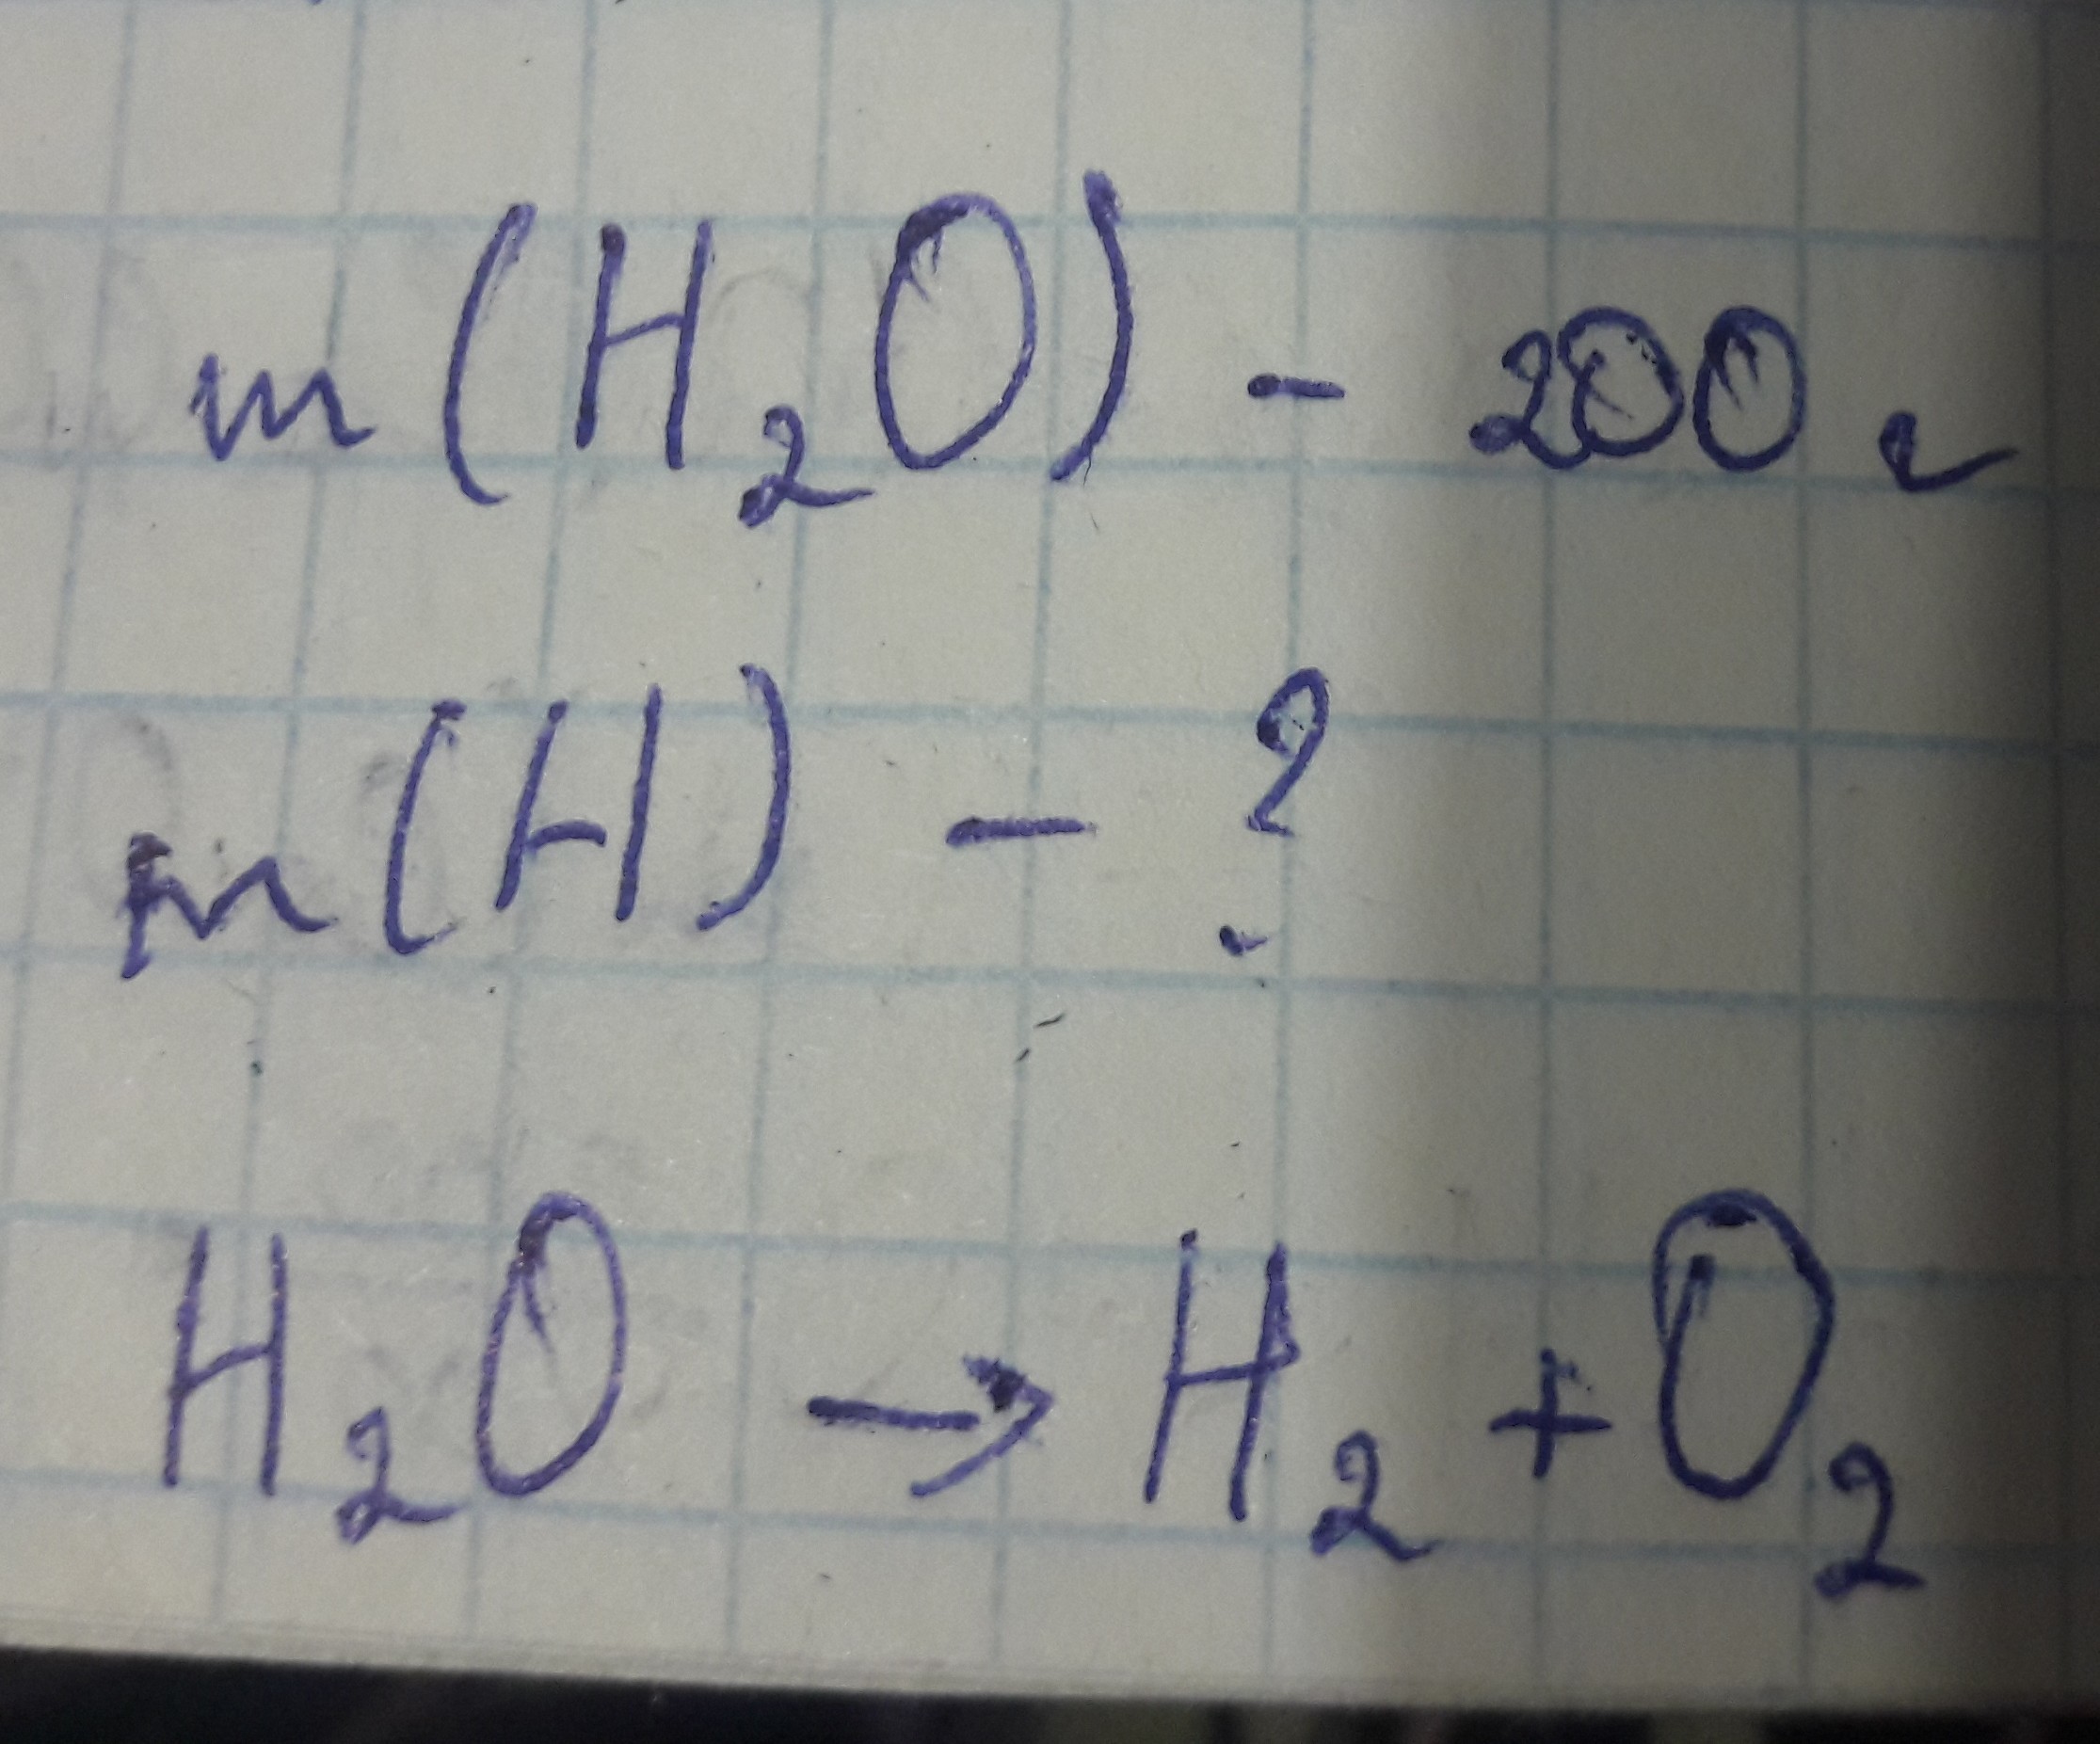 m(H₂O) - 200 г
m(H) - ?
H₂O → H₂ + O₂